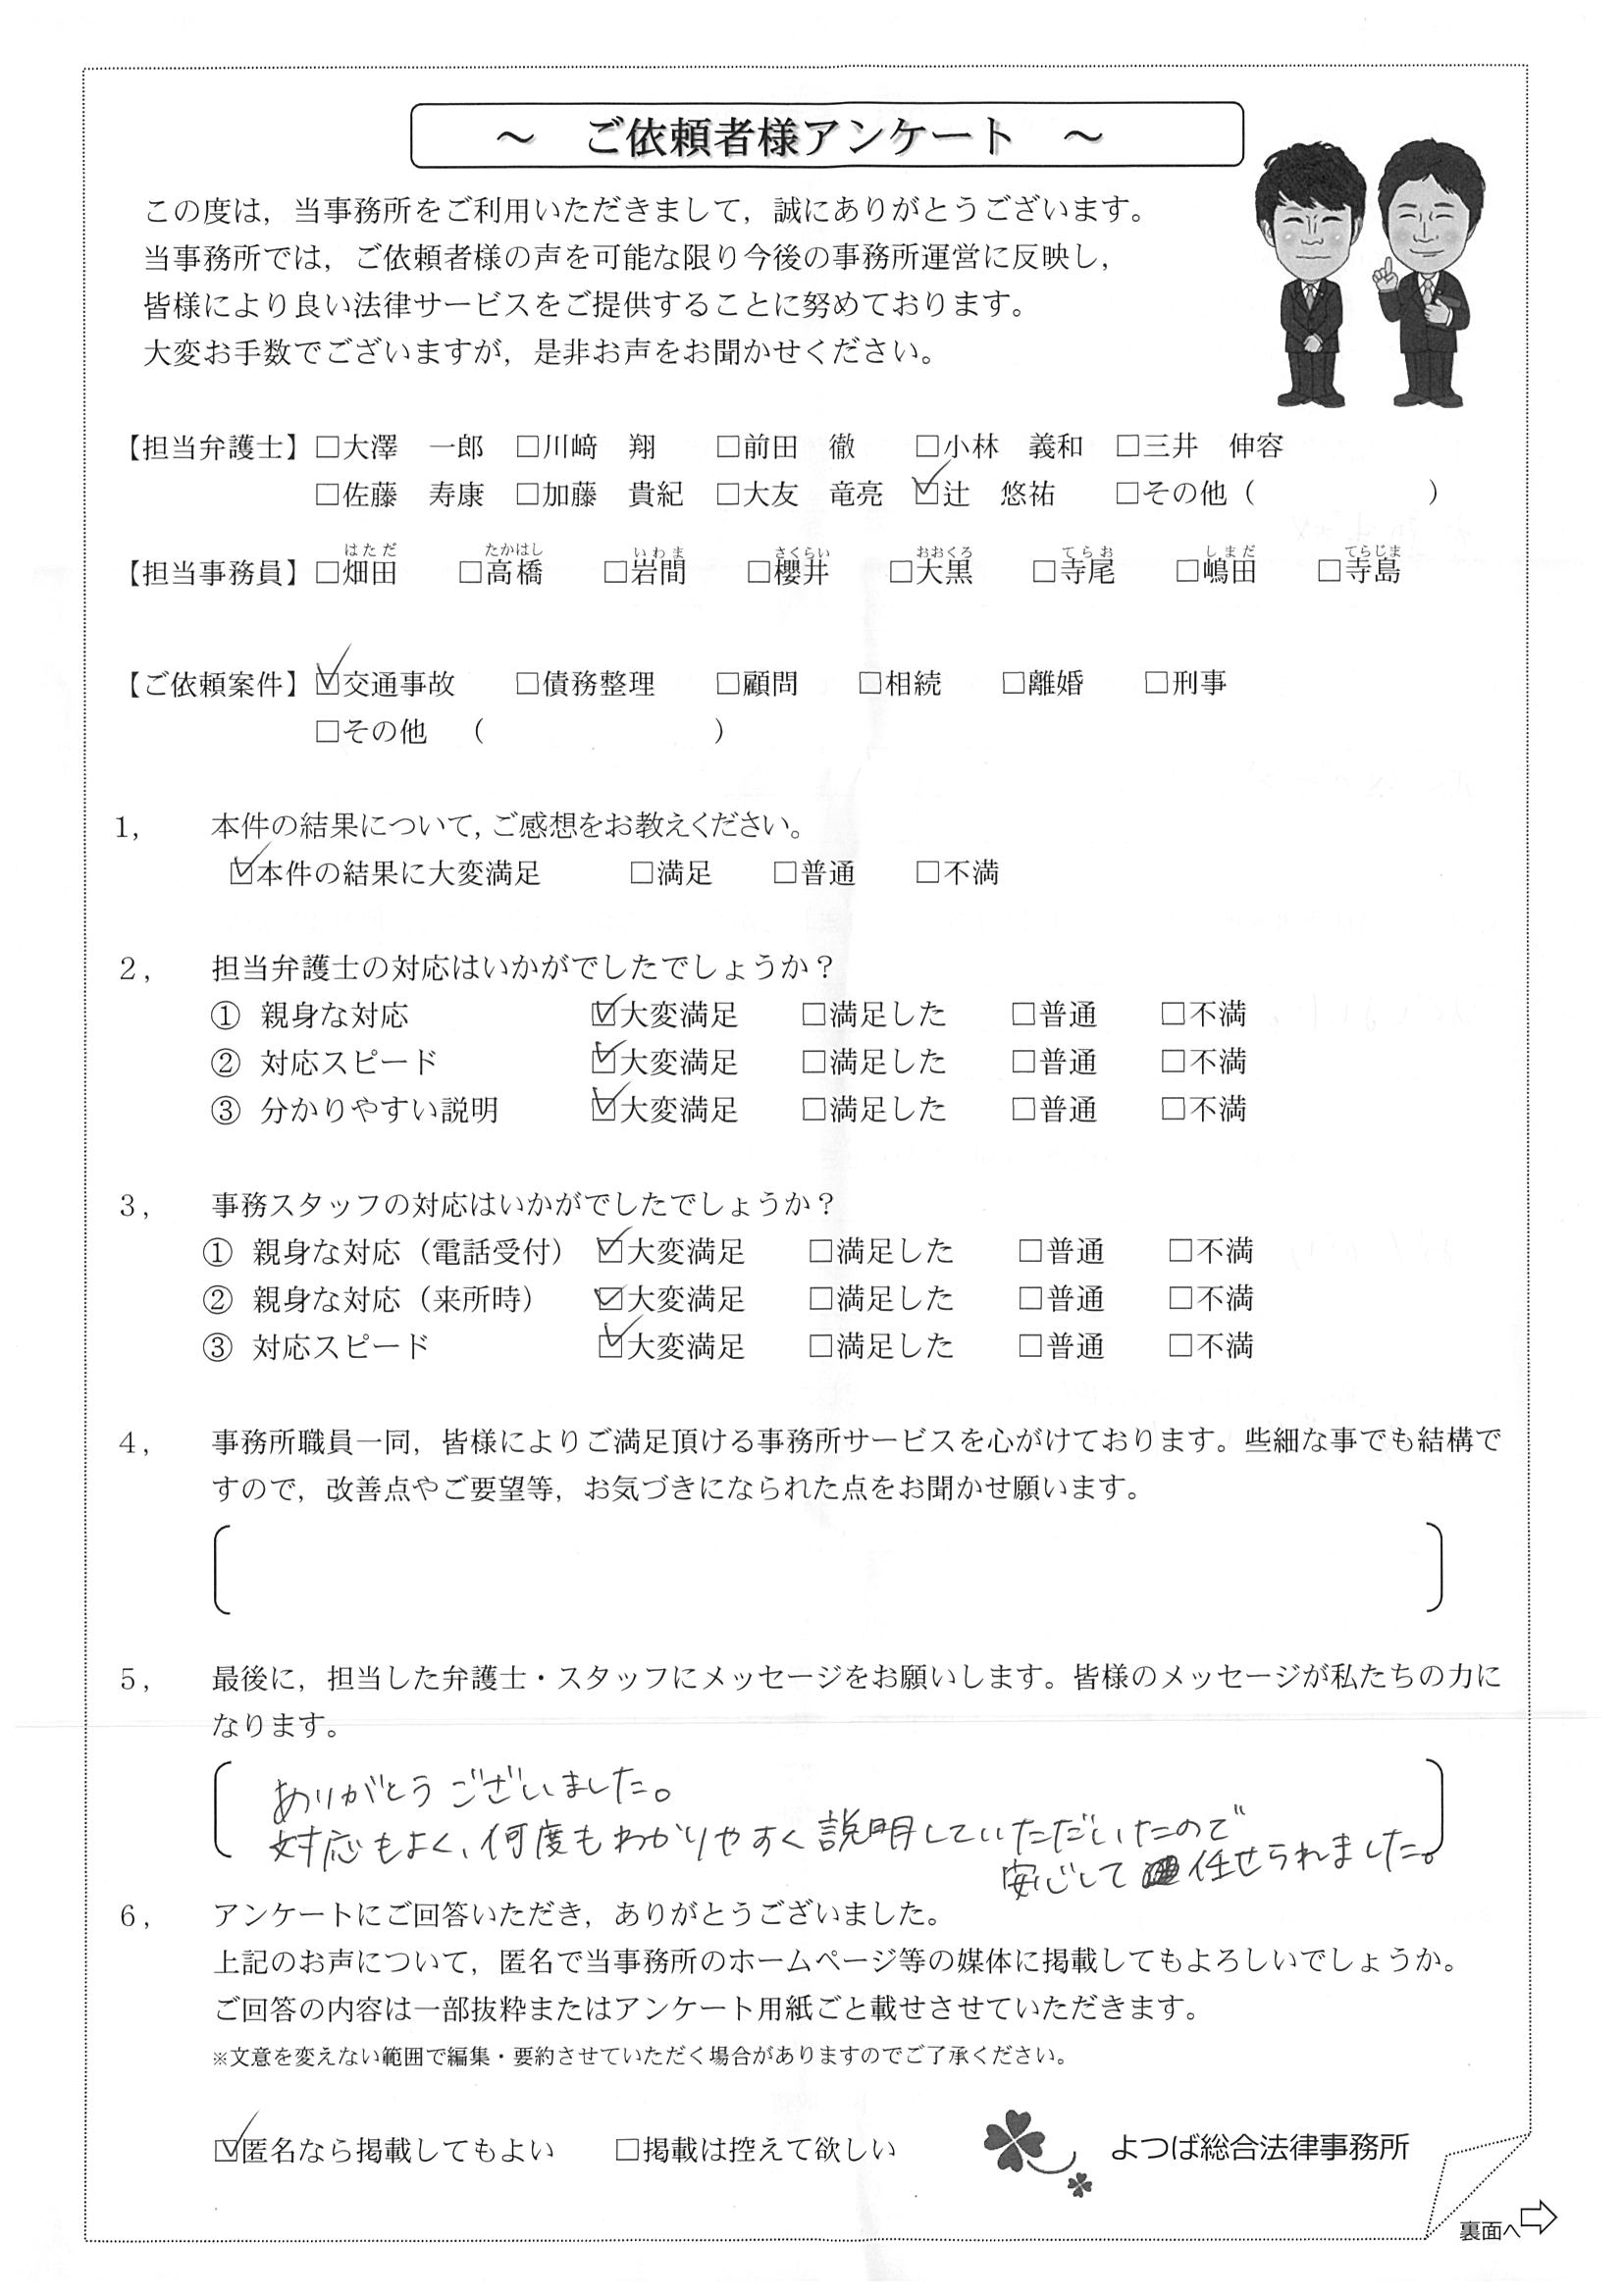 ～　ご依頼者様アンケート　～
この度は，当事務所をご利用いただきまして，誠にありがとうございます。
当事務所では，ご依頼者様の声を可能な限り今後の事務所運営に反映し，
皆様により良い法律サービスをご提供することに努めております。
大変お手数でございますが，是非お声をお聞かせください。
【担当弁護士】□大澤　一郎　□川﨑　翔　□前田　徹　□小林　義和　□三井　伸容
□佐藤　寿康　□加藤　貴紀　□大友　竜亮　☑辻　悠祐　□その他（　　　　　　）
はただ　たかはし　いわま　さくらい　おおくろ　てらお　しまだ　てらじま
【担当事務員】□畑田　□高橋　□岩間　□櫻井　□大黒　□寺尾　□嶋田　□寺島
【ご依頼案件】☑交通事故　□債務整理　□顧問　□相続　□離婚　□刑事
□その他　（　　　　　　　　）
1,　本件の結果について，ご感想をお教えください。
☑本件の結果に大変満足　□満足　□普通　□不満
２，　担当弁護士の対応はいかがでしたでしょうか？
① 親身な対応　☑大変満足　□満足した　□普通　□不満
② 対応スピード　☑大変満足　□満足した　□普通　□不満
③ 分かりやすい説明　☑大変満足　□満足した　□普通　□不満
３，　事務スタッフの対応はいかがでしたでしょうか？
① 親身な対応（電話受付）　☑大変満足　□満足した　□普通　□不満
② 親身な対応（来所時）　☑大変満足　□満足した　□普通　□不満
③ 対応スピード　☑大変満足　□満足した　□普通　□不満
４，　事務所職員一同，皆様によりご満足頂ける事務所サービスを心がけております。些細な事でも結構で
すので，改善点やご要望等，お気づきになられた点をお聞かせ願います。
５，　最後に，担当した弁護士・スタッフにメッセージをお願いします。皆様のメッセージが私たちの力に
なります。
ありがとうございました。
対応もよく、何度もわかりやすく説明していただいたので
安心して任せられました。
６，　アンケートにご回答いただき，ありがとうございました。
上記のお声について，匿名で当事務所のホームページ等の媒体に掲載してもよろしいでしょうか。
ご回答の内容は一部抜粋またはアンケート用紙ごと載せさせていただきます。
※文意を変えない範囲で編集・要約させていただく場合がありますのでご了承ください。
☑匿名なら掲載してもよい　□掲載は控えて欲しい　よつば総合法律事務所
裏面へ